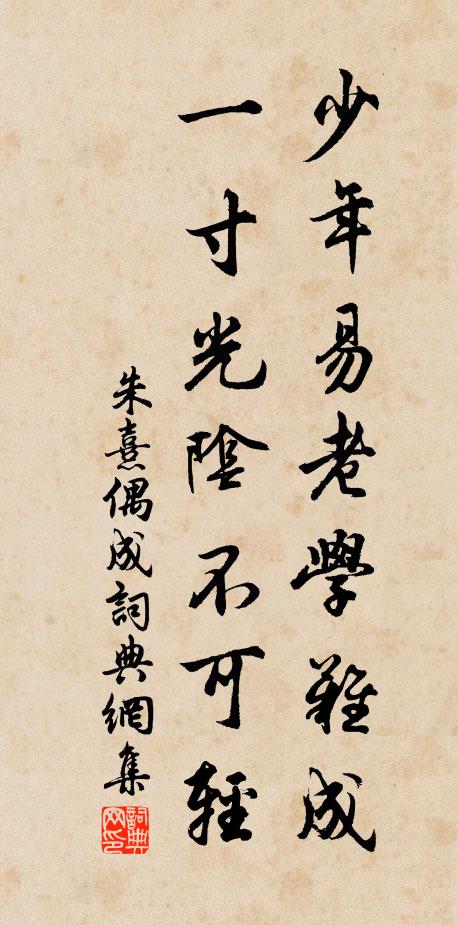 少年易老學難成
一寸光陰不可輕
朱熹偶成詞典網集
詞典网印